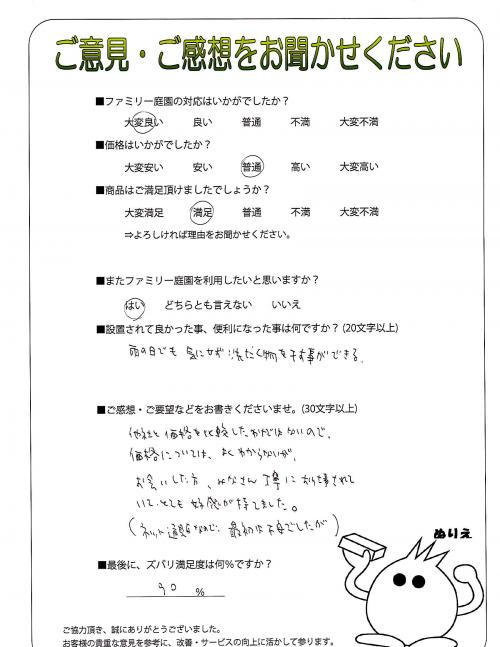 ご意見・ご感想をお聞かせください
■ファミリー庭園の対応はいかがでしたか？
大変良い 良い 普通 不満 大変不満
■価格はいかがでしたか？
大変安い 安い 普通 高い 大変高い
■商品はご満足頂けましたでしょうか？
大変満足 満足 普通 不満 大変不満
⇒よろしければ理由をお聞かせください。
■またファミリー庭園を利用したいと思いますか？
はい どちらとも言えない いいえ
■設置されて良かった事、便利になった事は何ですか？(20文字以上)
雨の日でも 気にせず 洗たく物を干す事ができる。
■ご感想・ご要望などをお書きくださいませ。(30文字以上)
他社と価格を比較したわけではないので、
価格については、よくわからないが、
お会いした方、みなさん 丁寧に お仕事されて
いて とても 好感が持てました。
(ネット通販なので 最初は不安でしたが)
ぬりえ
■最後に、ズバリ満足度は何%ですか？
90 %
ご協力頂き、誠にありがとうございました。
お客様の貴重な意見を参考に、改善・サービスの向上に活かして参ります。